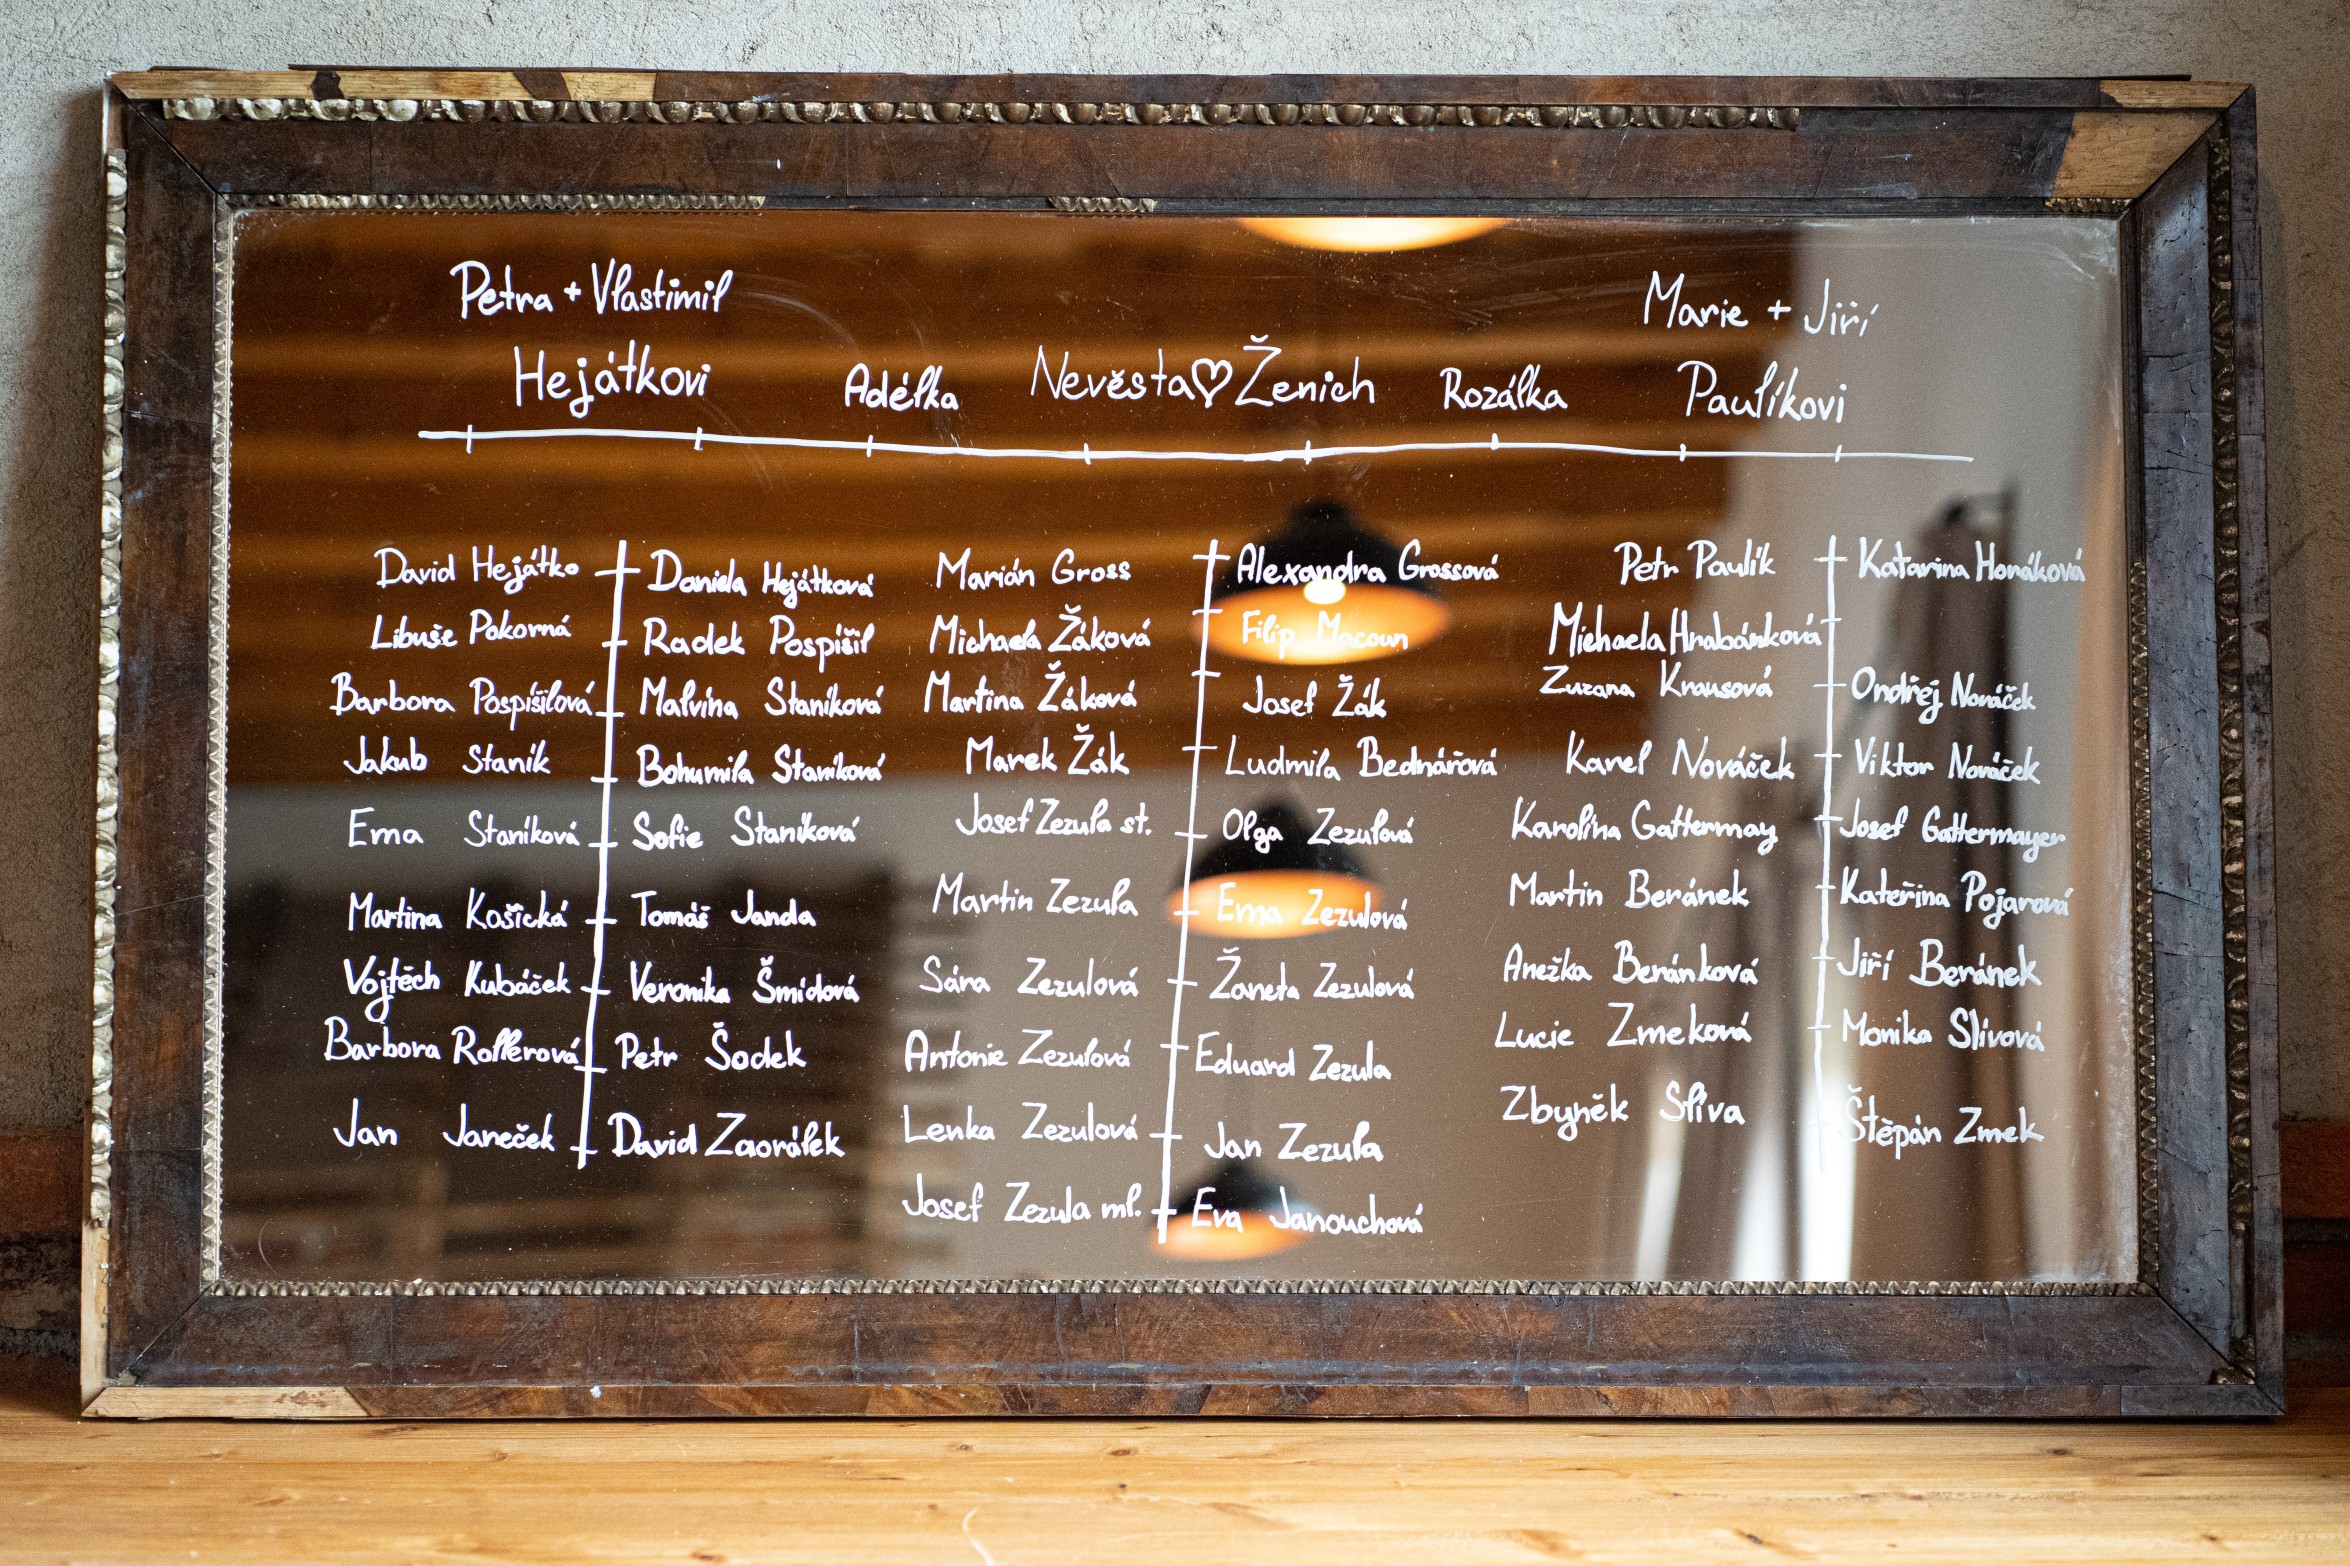 Petra + Vlastimil
Marie + Jiří
Hejátkovi
Adélka
Nevěsta♡Ženich
Rozálka
Paulíkovi
David Hejátko
Libuše Pokorná
Barbora Pospíšilová
Jakub Staník
Ema Staníková
Martina Košická
Vojtěch Kubáček
Barbora Rollerová
Jan Janeček
Daniela Hejátková
Radek Pospíšil
Malvína Staníková
Bohumila Staníková
Sofie Staníková
Tomáš Janda
Veronika Šmídová
Petr Šodek
David Zaorálek
Marián Gross
Michaela Žáková
Martina Žáková
Marek Žák
Josef Zezula st.
Martin Zezula
Sára Zezulová
Antonie Zezulová
Lenka Zezulová
Josef Zezula ml.
Alexandra Grossová
Filip Macoun
Josef Žák
Ludmila Bednářová
Olga Zezulová
Ema Zezulová
Žaneta Zezulová
Eduard Zezula
Jan Zezula
Eva Janouchová
Petr Paulík
Michaela Hrabánková
Zuzana Krausová
Karel Nováček
Karolína Gattermay
Martin Beránek
Anežka Beránková
Lucie Zmeková
Zbyněk Slíva
Katarina Horáková
Ondřej Nováček
Viktor Nováček
Josef Gattermayer
Kateřina Pojarová
Jiří Beránek
Monika Slívová
Štěpán Zmek